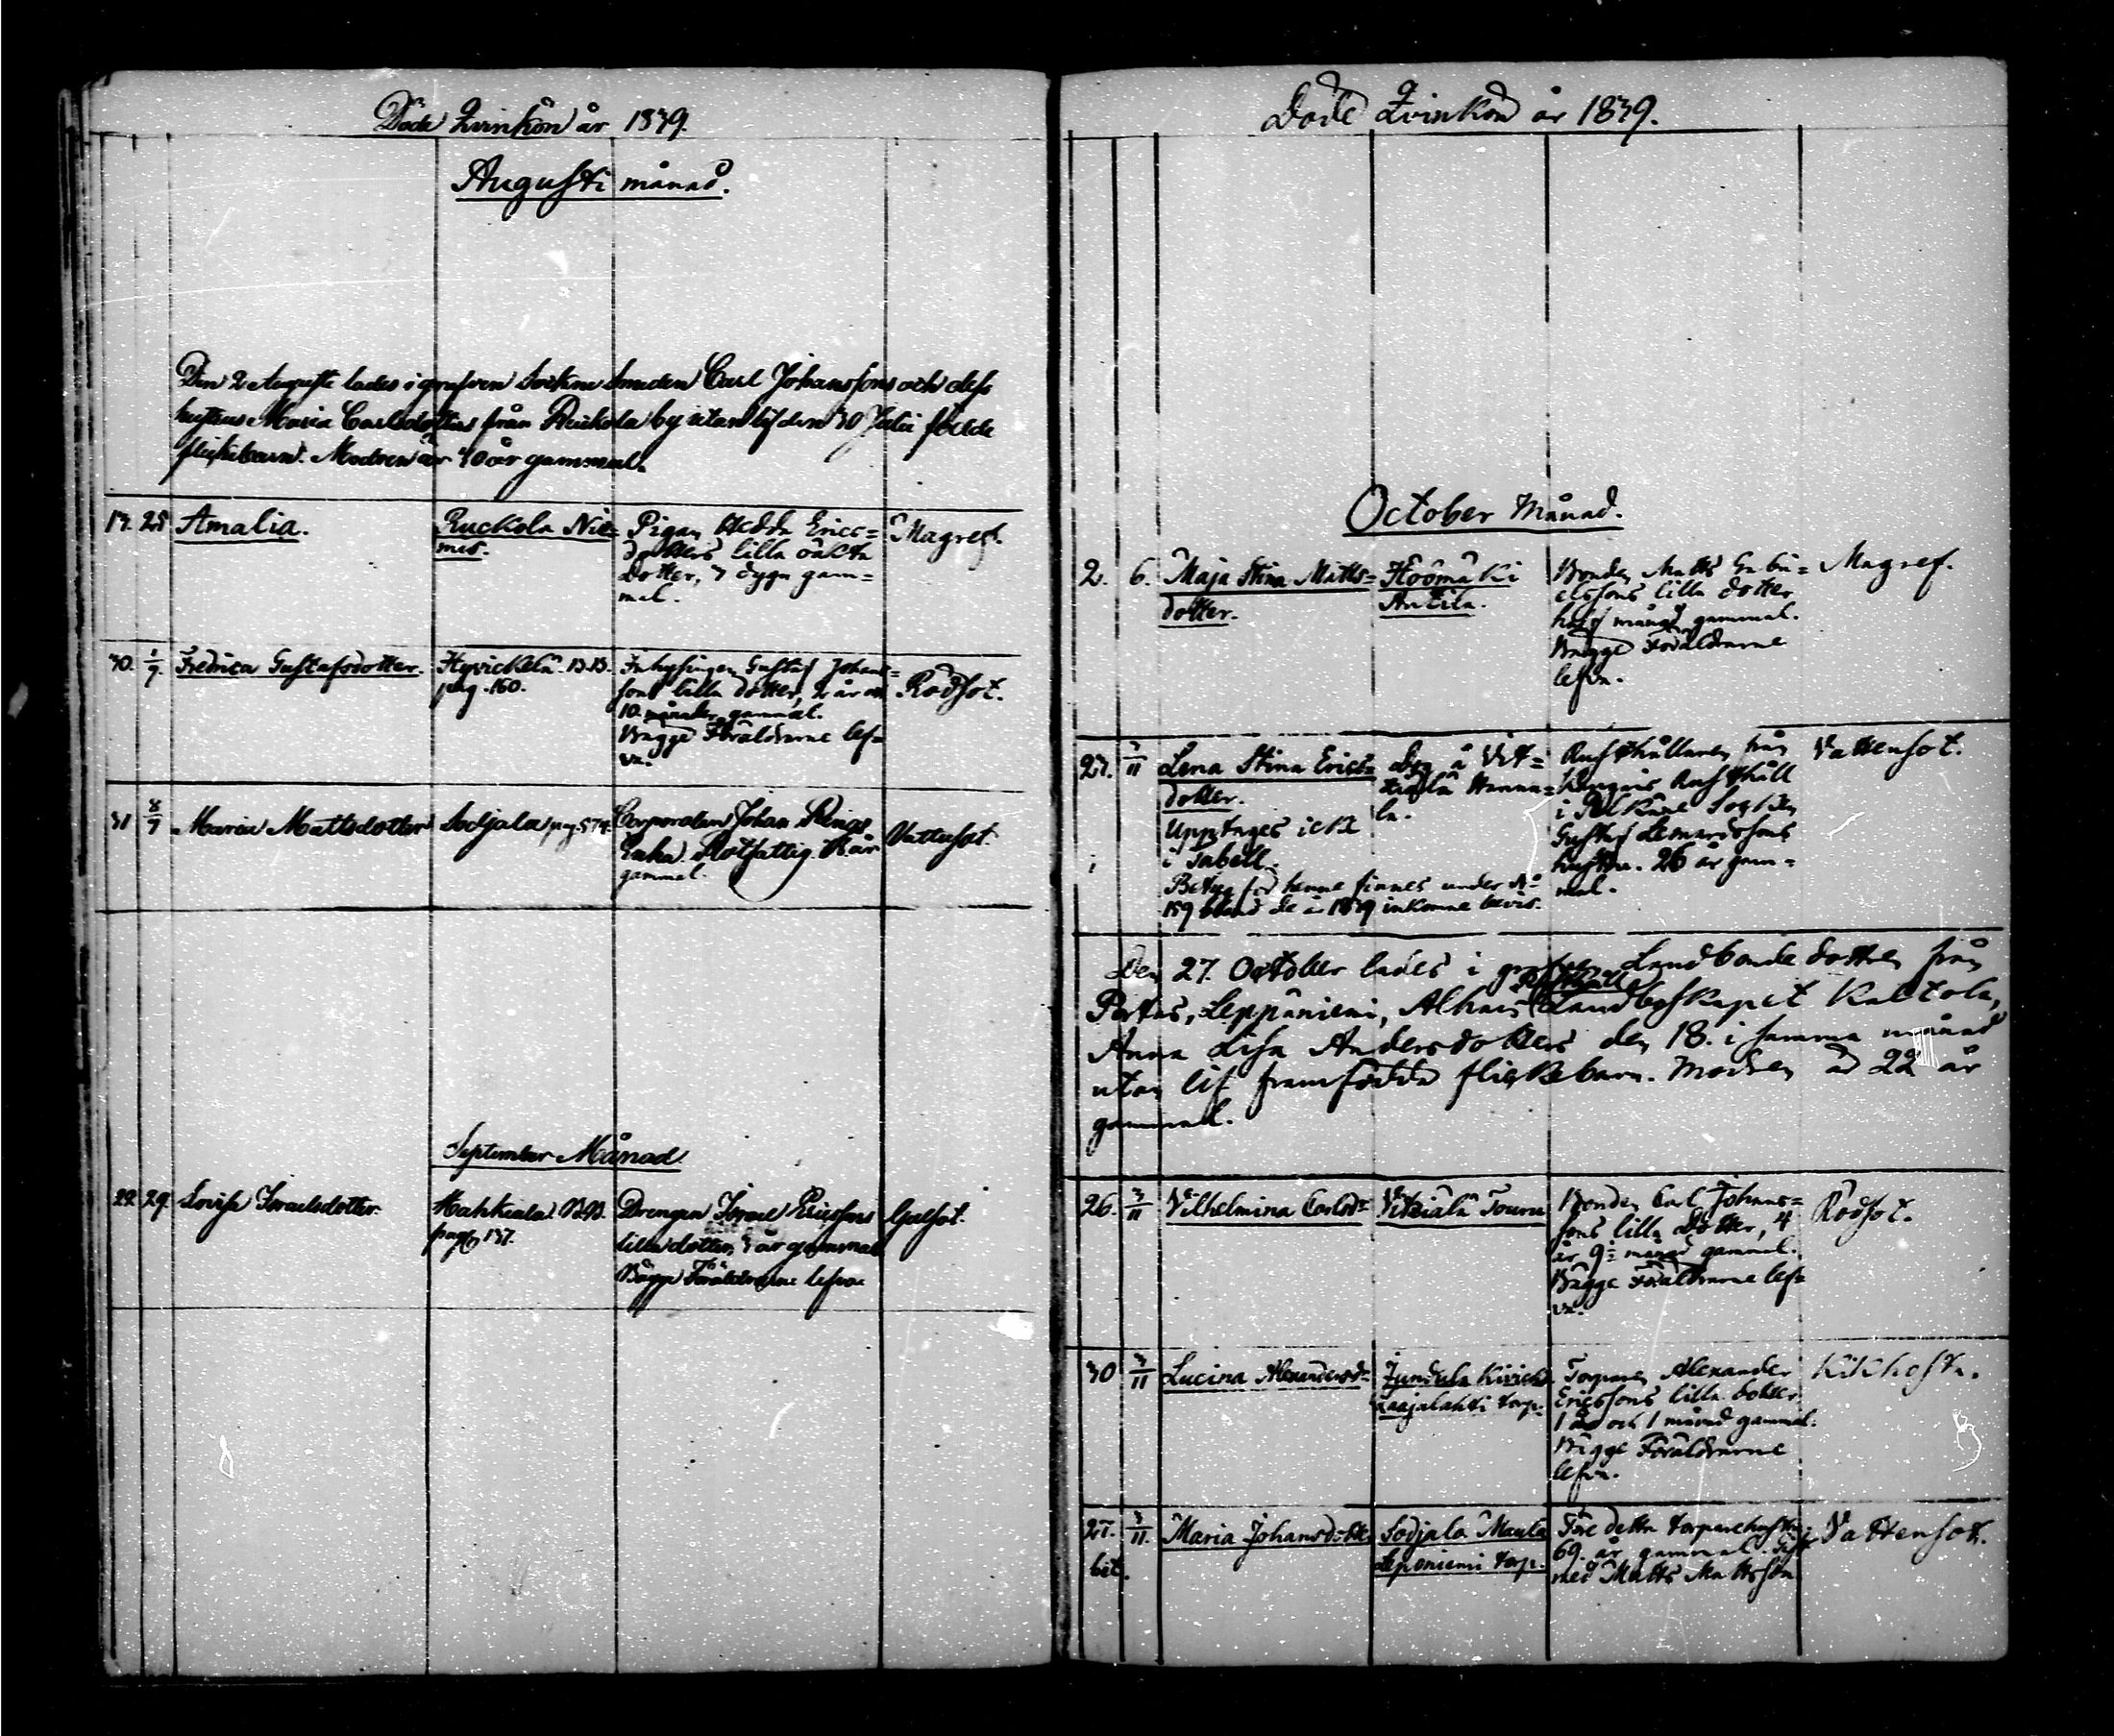 Döde Qvinkön år 1839.
Augusti månad.
Den 2 Augusti lades i grafven Sockne Smeden Carl Johanssons och dess
hustrus Maria Carlsdotters från Ruckola by utan lif den 30 Julii födde
flickebarn. Modren är 40 år gammal.
17. 25 Amalia.
Ruckola Nie=
mis.
Pigan Hedda Erics=
dotters lilla oäkta
Dotter, 7 dygn gam=
mal.
Magref.
30. 1/9. Fredrica Gustafsdotter.
Hyrickelä. B.B.
pag. 160.
Inhysingen Gustaf Johans=
sons lilla dotter, 2 år och
10 månader gammal.
Bägge Föräldrarne lef=
va.
Rödsot.
31 8/9 Maria Mattsdotter
Sodjala pag. 574.
Corporalen Johan Rings
Enka. Rotfattig. år
gammal.
Vattusot.
September Månad
22. 29. Lovisa Israelsdotter.
Mahkiala. B.B.
pag. 137.
Drengen Israel Ericssons
lilla dotter, 3 år gammal
Bägge Föräldrarne lefva
Gulsot.
Döde Qvinkön år 1839.
October Månad.
2. 6. Maja Stina Matts=
dotter.
Höömäki
Antila.
Bonden Matts Gabri=
elssons lilla dotter
half månad gammal.
Bägge Föräldrarne
lefva.
Magref.
27. 3/11 Lena Stina Erics=
dotter.
Upptages icke
i Tabell.
Betyg för henne finnes under N:o
159 bland de år 1839 inkomne bevis.
Dog å Vit=
Hannu=
la.
Rusthållaren från
Rusthåll
i Pelkäne Socken
Gustaf Lemardssons
hustru. 26 år gam=
mal.
Vattensot.
Den 27. October lades i grafven Landbonde dottren från
Rusthålls
Portas, Leppäniemi, Alhais Landboskapet Kaltola,
Anna Lisa Andersdotters den 18. i samma månad
utan lif framfödda flickebarn. Modren är 22 år
gammal.
26. 3/11 Vilhelmina Carlsd=
Vitsiälä Touru
Bonden Carl Johans=
sons lilla Dotter, 4
år 9 månad gammal.
Bägge Föräldrarne lef=
va.
Rödsot.
30 3/11 Lucina Alexandersd=
Laajalahti torp.
Torparen Alexander
Ericssons lilla dotter
1 år och 1 månad gammal.
Bägge Föräldrarne
lefva.
Kikhosta.
27. 3/11. Maria Johansdotter
Sodjala Maula
Leponiemi torp.
Före detta torparehustru
69. år gammal. Gift
med Matts Mattsson
Vattensot.